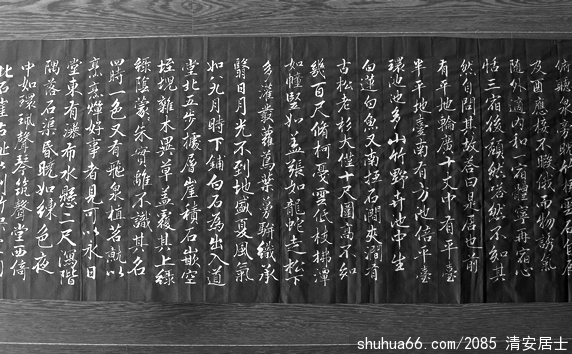 俯聽泉旁睨竹樹雲石自辰
及酉應接不暇俄而物誘氣
隨外適內和一宿體寧再宿心
恬三宿後頹然嗒然不知其
然自問其故答曰是居也前
有平地輪廣十丈中有平臺
半平地臺南有方池倍平臺
環池池多山竹野卉池中生
白蓮白魚又南抵石澗夾澗有
古松老杉大僅十尺圍高不知
幾百尺脩柯戛雲低枝拂潭
如幢豎如蓋張如龍蛇走松下
多灌叢蘿蔦葉蔓駢織承
翳日月光不到地盛夏風氣
如八九月時下鋪白石為出入道
堂北五步據層崖積石山嵌空
垤堄雜木異草蓋覆其上綠
綠陰蒙朱實離不識其名
四時一色又有飛泉植茗就以
烹燀好事者見可以永日
堂東有瀑布水懸三尺瀉階
隅落石渠昏曉如練色夜
中如環珮琴筑聲堂西倚
北崖右趾以剖竹架空引
shuhua66.com/2085 清安居士